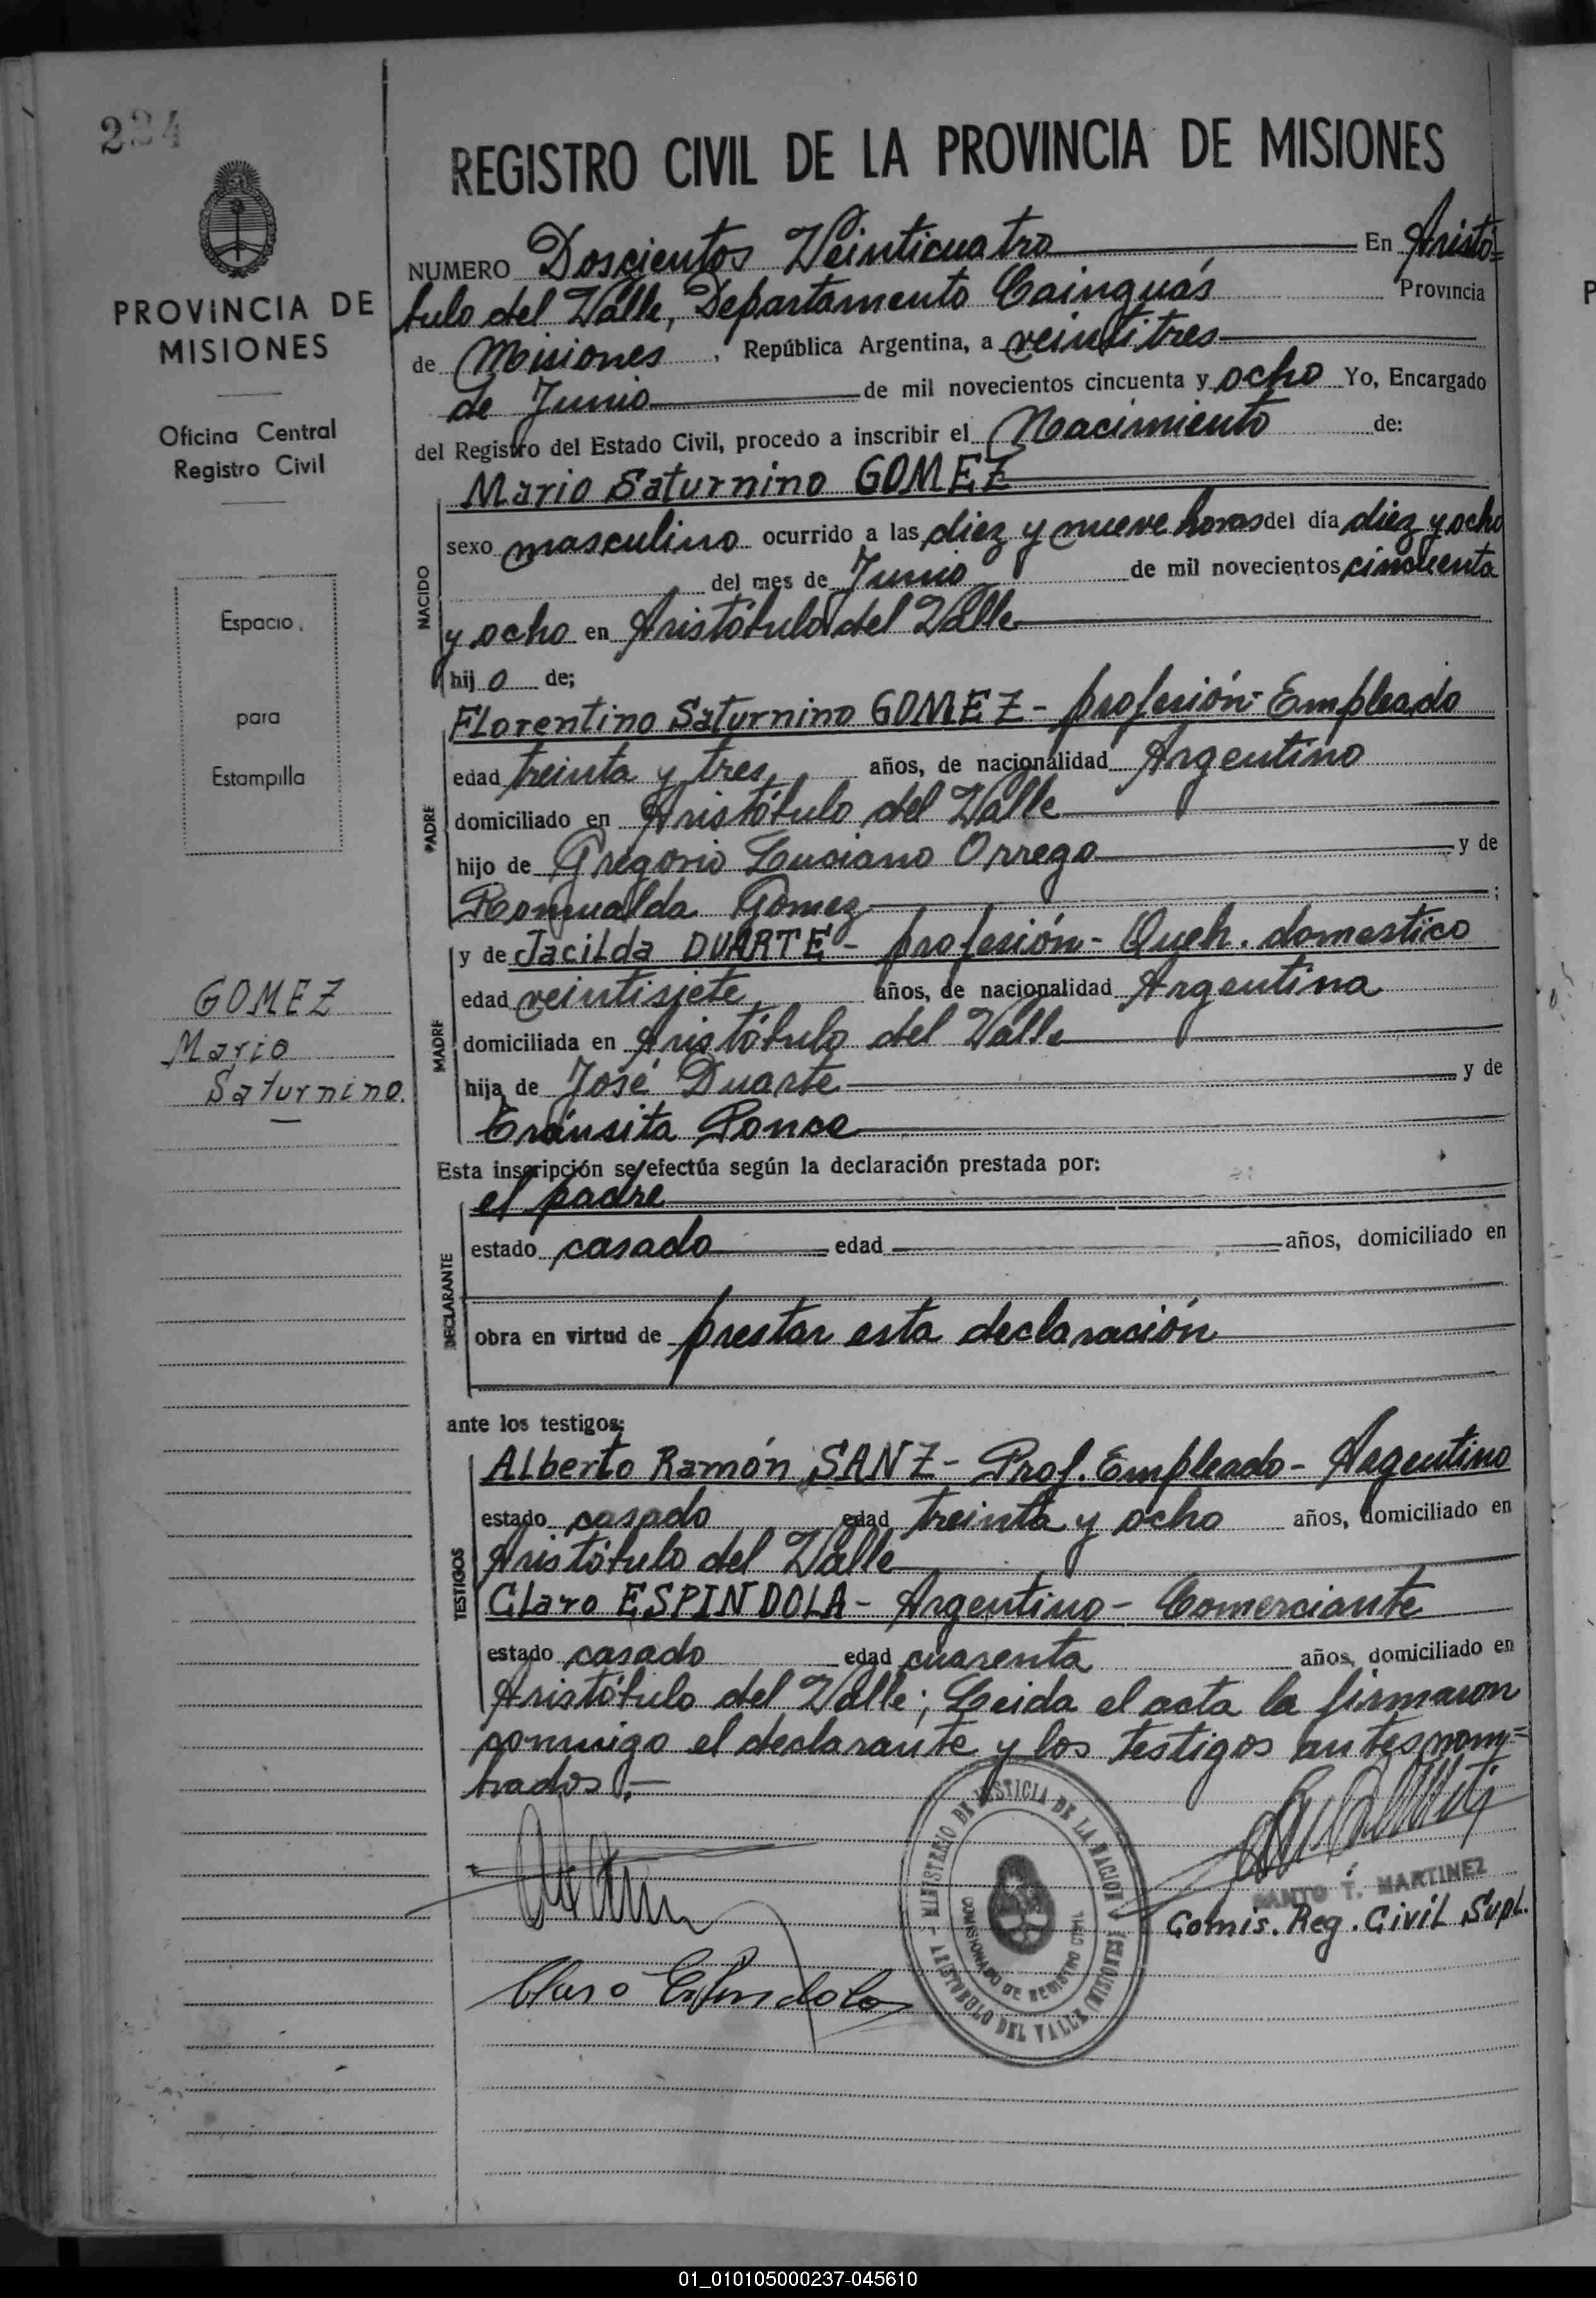 224
PROVINCIA DE
MISIONES
Oficina Central
Registro Civil
Espacio
para
Estampilla
GOMEZ
Mario
Saturnino.
REGISTRO CIVIL DE LA PROVINCIA DE MISIONES
NUMERO Doscientos Veinticuatro En Aristó=
bulo del Valle, Departamento Cainguás Provincia
de Misiones, República Argentina, a veintitres
de Junio de mil novecientos cincuenta y ocho Yo, Encargado
del Registro del Estado Civil, procedo a inscribir el Nacimiento de:
NACIDO
Mario Saturnino GOMEZ
sexo masculino ocurrido a las diez y nueve horas del día diez y ocho
del mes de Junio de mil novecientos cincuenta
y ocho en Aristóbulo del Valle
hijo de;
PADRE
Florentino Saturnino GOMEZ - profesión - Empleado
edad treinta y tres años, de nacionalidad Argentino
domiciliado en Aristóbulo del Valle
hijo de Gregorio Luciano Orrego y de
Romualda Gomez ;
MADRE
y de Jacilda DUARTE - profesión - Queh. domestico
edad veintisiete años, de nacionalidad Argentina
domiciliada en Aristóbulo del Valle
hija de José Duarte y de
Tránsita Ponce
Esta inscripción se efectúa según la declaración prestada por:
DECLARANTE
el padre
estado casado edad años, domiciliado en
obra en virtud de prestar esta declaración
ante los testigos;
TESTIGOS
Alberto Ramón SANZ - Prof. Empleado - Argentino
estado casado edad treinta y ocho años, domiciliado en
Aristóbulo del Valle
Claro ESPINDOLA - Argentino - Comerciante
estado casado edad cuarenta años, domiciliado en
Aristóbulo del Valle; Leida el acta la firmaron
conmigo el declarante y los testigos antes nom=
brados.-
MINISTERIO DE JUSTICIA DE LA NACION
COMISIONADO DE REGISTRO CIVIL
ARISTOBULO DEL VALLE (MISIONES)
SANTO T. MARTINEZ
Comis. Reg. Civil Supl.
Claro Espindola
01_010105000237-045610